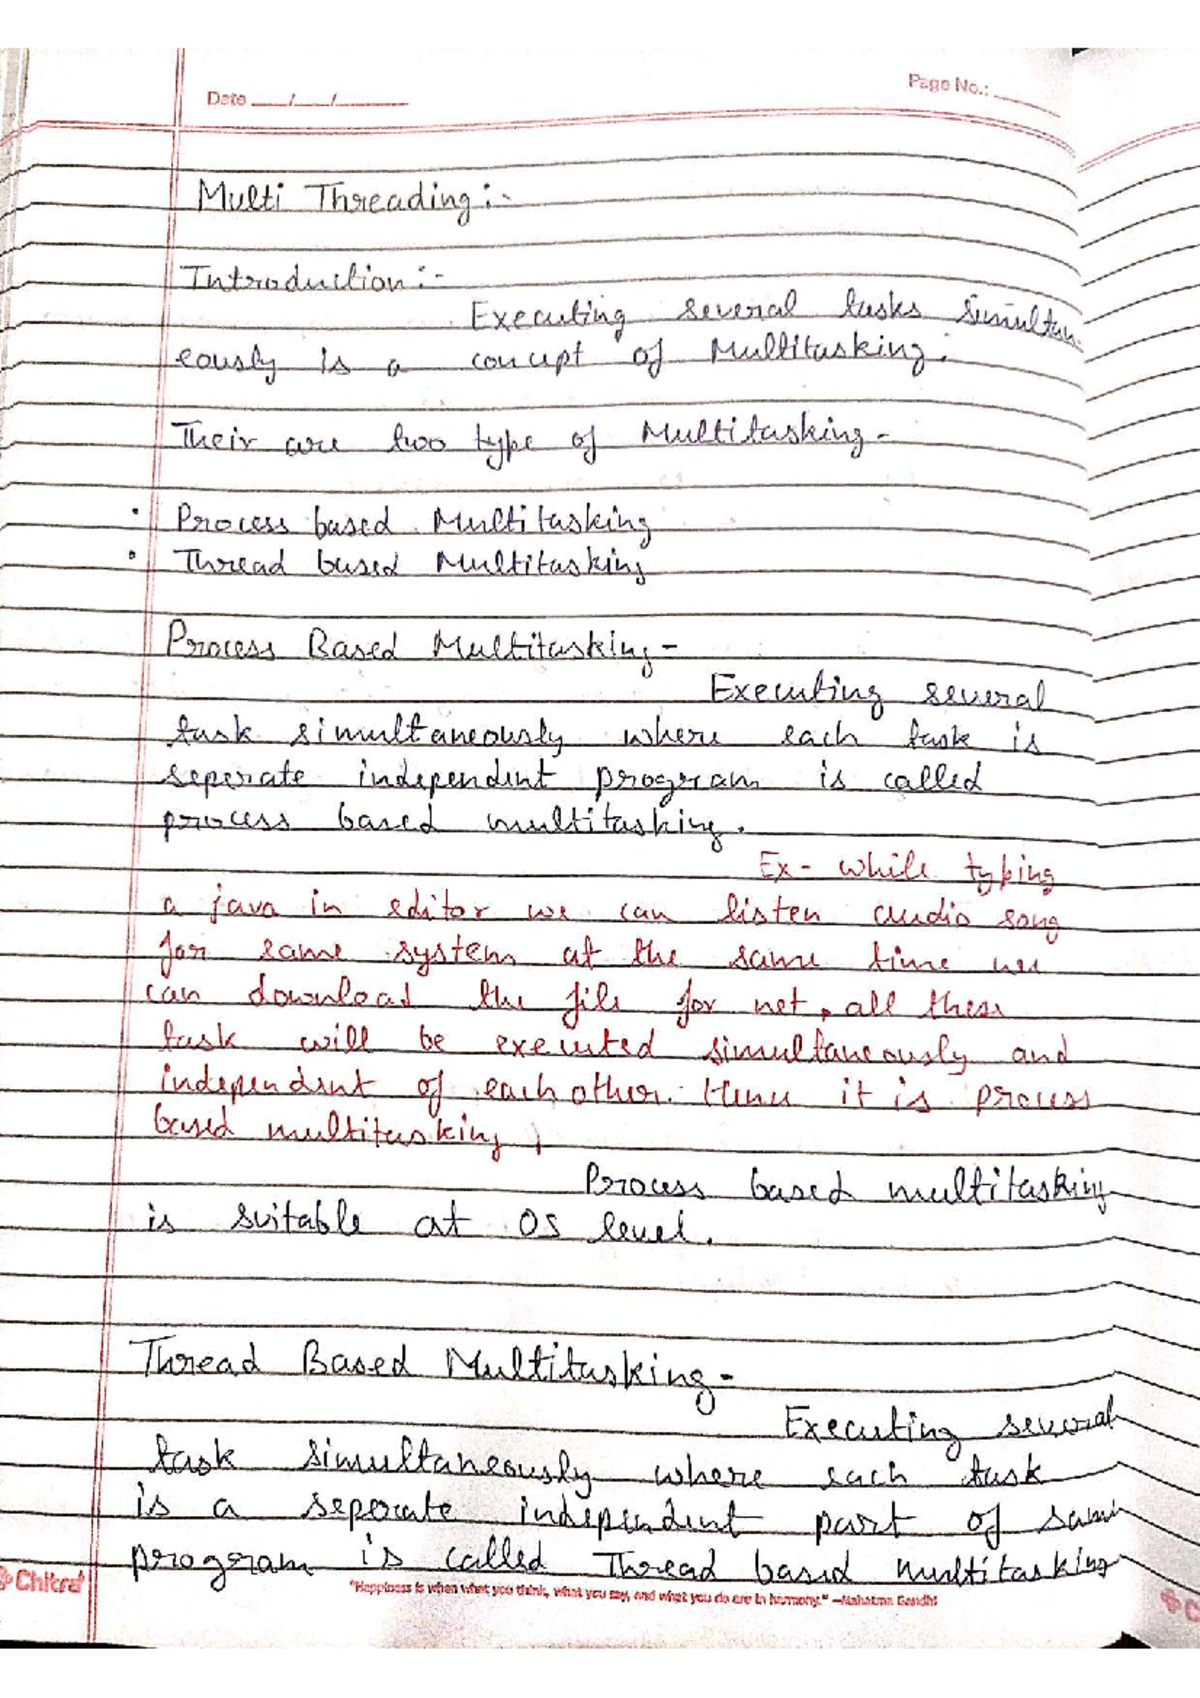 Date ___/___/______
Page No.: ______
Multi Threading :-
Introduction :-
Executing several tasks simultan-
eously is a concept of Multitasking.
Their are two type of Multitasking -
• Process based Multitasking
• Thread based Multitasking
Process Based Multitasking -
Executing several
task simultaneously where each task is
seperate independent program is called
process based multitasking.
Ex - while typing
a java in editor we can listen audio song
for same system at the same time we
can download the file for net, all these
task will be executed simultaneously and
independent of each other. Hence it is process
based multitasking,
Process based multitasking
is suitable at OS level.
Thread Based Multitasking -
Executing several
task simultaneously where each task
is a seperate independent part of same
program is called Thread based multitasking
Chitra
"Happiness is when what you think, what you say, and what you do are in harmony." –Mahatma Gandhi